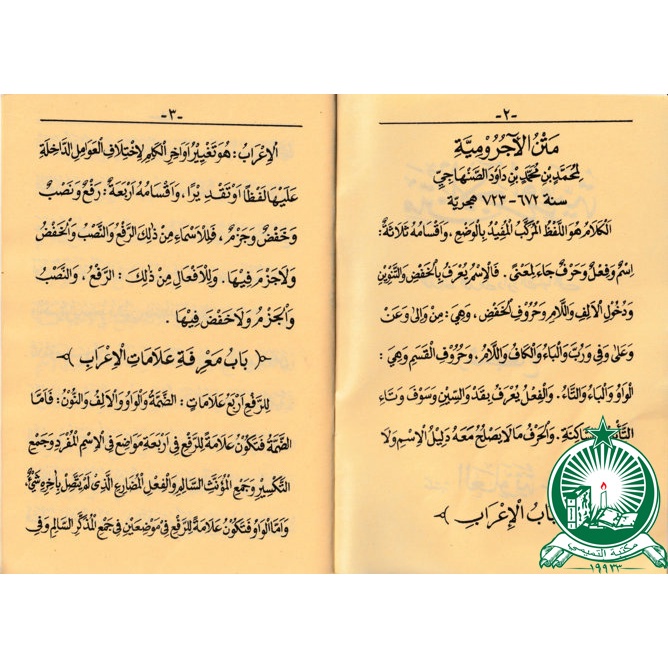 -٢-
مَتْنُ الْآجُرُوْمِيَّةِ
لِمُحَمَّدِ بْنِ مُحَمَّدِ بْنِ دَاوُدَ الصَّنْهَاجِيْ
سنة ٦٧٢ - ٧٢٣ هجرية
الْكَلَامُ هُوَ اللَّفْظُ الْمُرَكَّبُ الْمُفِيْدُ بِالْوَضْعِ ، وَأَقْسَامُهُ ثَلَاثَةٌ :
اِسْمٌ وَفِعْلٌ وَحَرْفٌ جَاءَ لِمَعْنًى . فَالْاِسْمُ يُعْرَفُ بِالْخَفْضِ وَالتَّنْوِيْنِ
وَدُخُوْلِ الْأَلِفِ وَاللَّامِ وَحُرُوْفِ الْخَفْضِ ، وَهِيَ : مِنْ وَإِلَى وَعَنْ
وَعَلَى وَفِى وَرُبَّ وَالْبَاءُ وَالْكَافُ وَاللَّامُ ، وَحُرُوْفُ الْقَسَمِ وَهِيَ :
الْوَاوُ وَالْبَاءُ وَالتَّاءُ . وَالْفِعْلُ يُعْرَفُ بِقَدْ وَالسِّيْنِ وَسَوْفَ وَتَاءِ
وَالْحَرْفُ مَا لَا يَصْلُحُ مَعَهُ دَلِيْلُ الْاِسْمِ وَلَا
بَابُ الْإِعْرَابِ
-٣-
اَلْإِعْرَابُ : هُوَ تَغْيِيْرُ اَوَاخِرِ الْكَلِمِ لِاخْتِلَافِ الْعَوَامِلِ الدَّاخِلَةِ
عَلَيْهَا لَفْظًا اَوْ تَقْدِيْرًا . وَأَقْسَامُهُ اَرْبَعَةٌ : رَفْعٌ وَنَصْبٌ
وَخَفْضٌ وَجَزْمٌ ، فَلِلْاَسْمَاءِ مِنْ ذٰلِكَ الرَّفْعُ وَالنَّصْبُ وَالْخَفْضُ
وَلَا جَزْمَ فِيْهَا . وَلِلْأَفْعَالِ مِنْ ذٰلِكَ : الرَّفْعُ ، وَالنَّصْبُ
وَالْجَزْمُ وَلَا خَفْضَ فِيْهَا .
﴿ بَابُ مَعْرِفَةِ عَلَامَاتِ الْإِعْرَابِ ﴾
لِلرَّفْعِ اَرْبَعُ عَلَامَاتٍ : الضَّمَّةُ وَالْوَاوُ وَالْأَلِفُ وَالنُّوْنُ : فَاَمَّا
الضَّمَّةُ فَتَكُوْنُ عَلَامَةً لِلرَّفْعِ فِى اَرْبَعَةِ مَوَاضِعَ فِى الْاِسْمِ الْمُفْرَدِ وَجَمْعِ
التَّكْسِيْرِ وَجَمْعِ الْمُؤَنَّثِ السَّالِمِ وَالْفِعْلِ الْمُضَارِعِ الَّذِى لَمْ يَتَّصِلْ بِاٰخِرِهِ شَيْءٌ ،
وَاَمَّا الْوَاوُ فَتَكُوْنُ عَلَامَةً لِلرَّفْعِ فِى مَوْضِعَيْنِ فِى جَمْعِ الْمُذَكَّرِ السَّالِمِ وَفِى
مكتبة التميمي
١٩٩٣٣